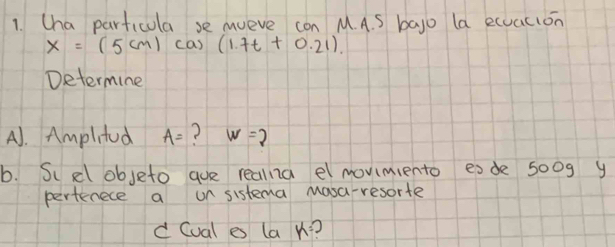 1. Una particula se mueve con M.A.S bajo la ecuación
x = (5 cm) cas (1.7t + 0.21).
Determine
A). Amplitud A=? W=?
b. Si el objeto que realiza el movimiento es de 500g y
pertenece a un sistema masa-resorte
d Cual es la K=?